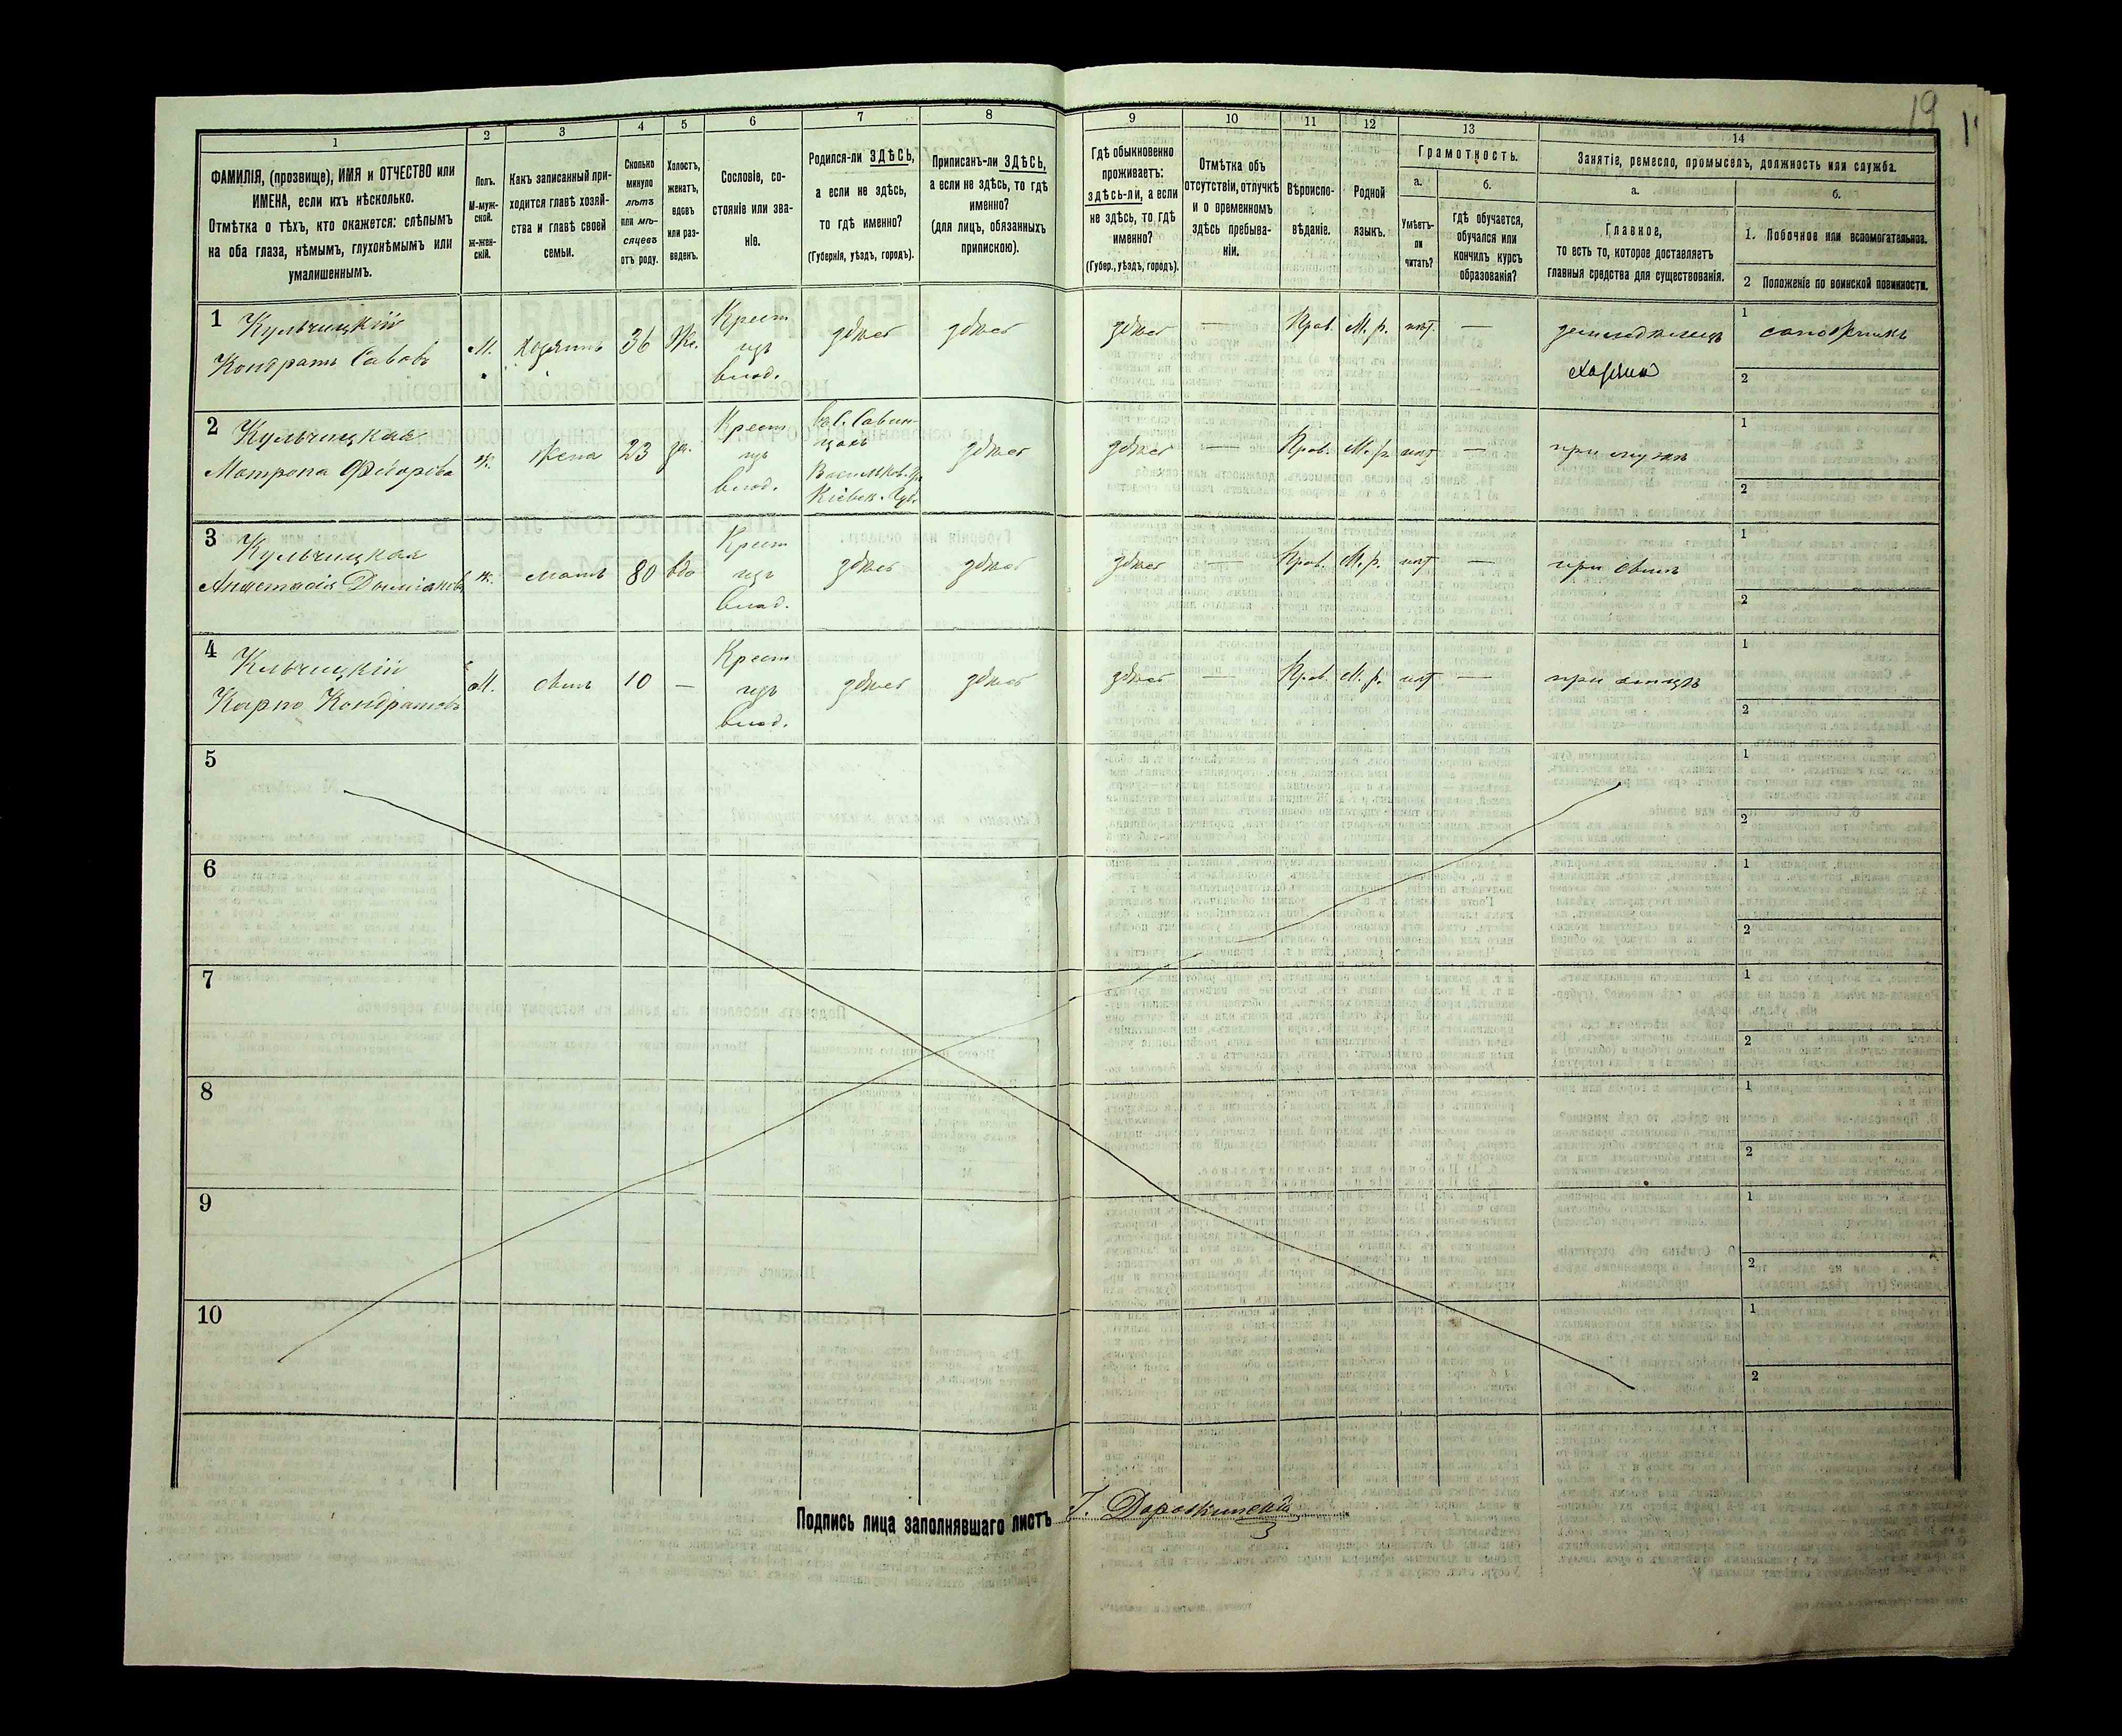 19
1
2
3
4
5
6
7
8
9
10
11
12
13
14
ФАМИЛІЯ, (прозвище), ИМЯ и ОТЧЕСТВО или
ИМЕНА, если ихъ нѣсколько.
Отмѣтка о тѣхъ, кто окажется: слѣпымъ
на оба глаза, нѣмымъ, глухонѣмымъ или
умалишеннымъ.
Полъ.
М-муж-
ской.
ж-жен-
скій.
Какъ записанный при-
ходится главѣ хозяй-
ства и главѣ своей
семьи.
Сколько
минуло
лѣтъ
или мѣ-
сяцевъ
отъ роду.
Холостъ,
женатъ,
вдовъ
или раз-
веденъ.
Сословіе, со-
стояніе или зва-
ніе.
Родился-ли ЗДѢСЬ,
а если не здѣсь,
то гдѣ именно?
(Губернія, уѣздъ, городъ).
Приписанъ-ли ЗДѢСЬ,
а если не здѣсь, то гдѣ
именно?
(для лицъ, обязанныхъ
припискою).
Гдѣ обыкновенно
проживаетъ:
здѣсь-ли, а если
не здѣсь, то гдѣ
именно?
(Губер., уѣздъ, городъ).
Отмѣтка объ
отсутствіи, отлучкѣ
и о временномъ
здѣсь пребыва-
ніи.
Вѣроиспо-
вѣданіе.
Родной
языкъ.
Грамотность.
а.
Умѣетъ-
ли
читать?
б.
гдѣ обучается,
обучался или
кончилъ курсъ
образованія?
Занятіе, ремесло, промыселъ, должность или служба.
а.
Главное,
то есть то, которое доставляетъ
главныя средства для существованія.
б.
1. Побочное или вспомогательное.
2 Положеніе по воинской повинности.
1 Кульчицкій
Кондратъ Савовъ
М. хозяинъ 36 Же.
Крест.
изъ
влад.
здѣсь здѣсь здѣсь — Прав. М. р. нѣт —
земледѣлецъ
хозяинъ
1 сапожникъ
2
2 Кульчицкая
Матрона Ѳедорова
ж. жена 23 за.
Крест
изъ
влад.
Васильков. у.
Кіевск. Губ.
здѣсь здѣсь — Прав. М. р. нѣт —
при мужѣ
1
2
3 Кульчицкая
Анастасія Доміанова
ж. мать 80 вдо
Крест
изъ
влад.
здѣсь здѣсь здѣсь — Прав. М. р. нѣт —
при сынѣ
1
2
4 Кльчицкій
Карпо Кондратовъ
М. сынъ 10 —
Крест
изъ
влад.
здѣсь здѣсь здѣсь — Прав. М. р. нѣт —
при отцѣ
1
2
5
1
2
6
1
2
7
1
2
8
1
2
9
1
2
10
1
2
Подпись лица заполнявшаго листъ